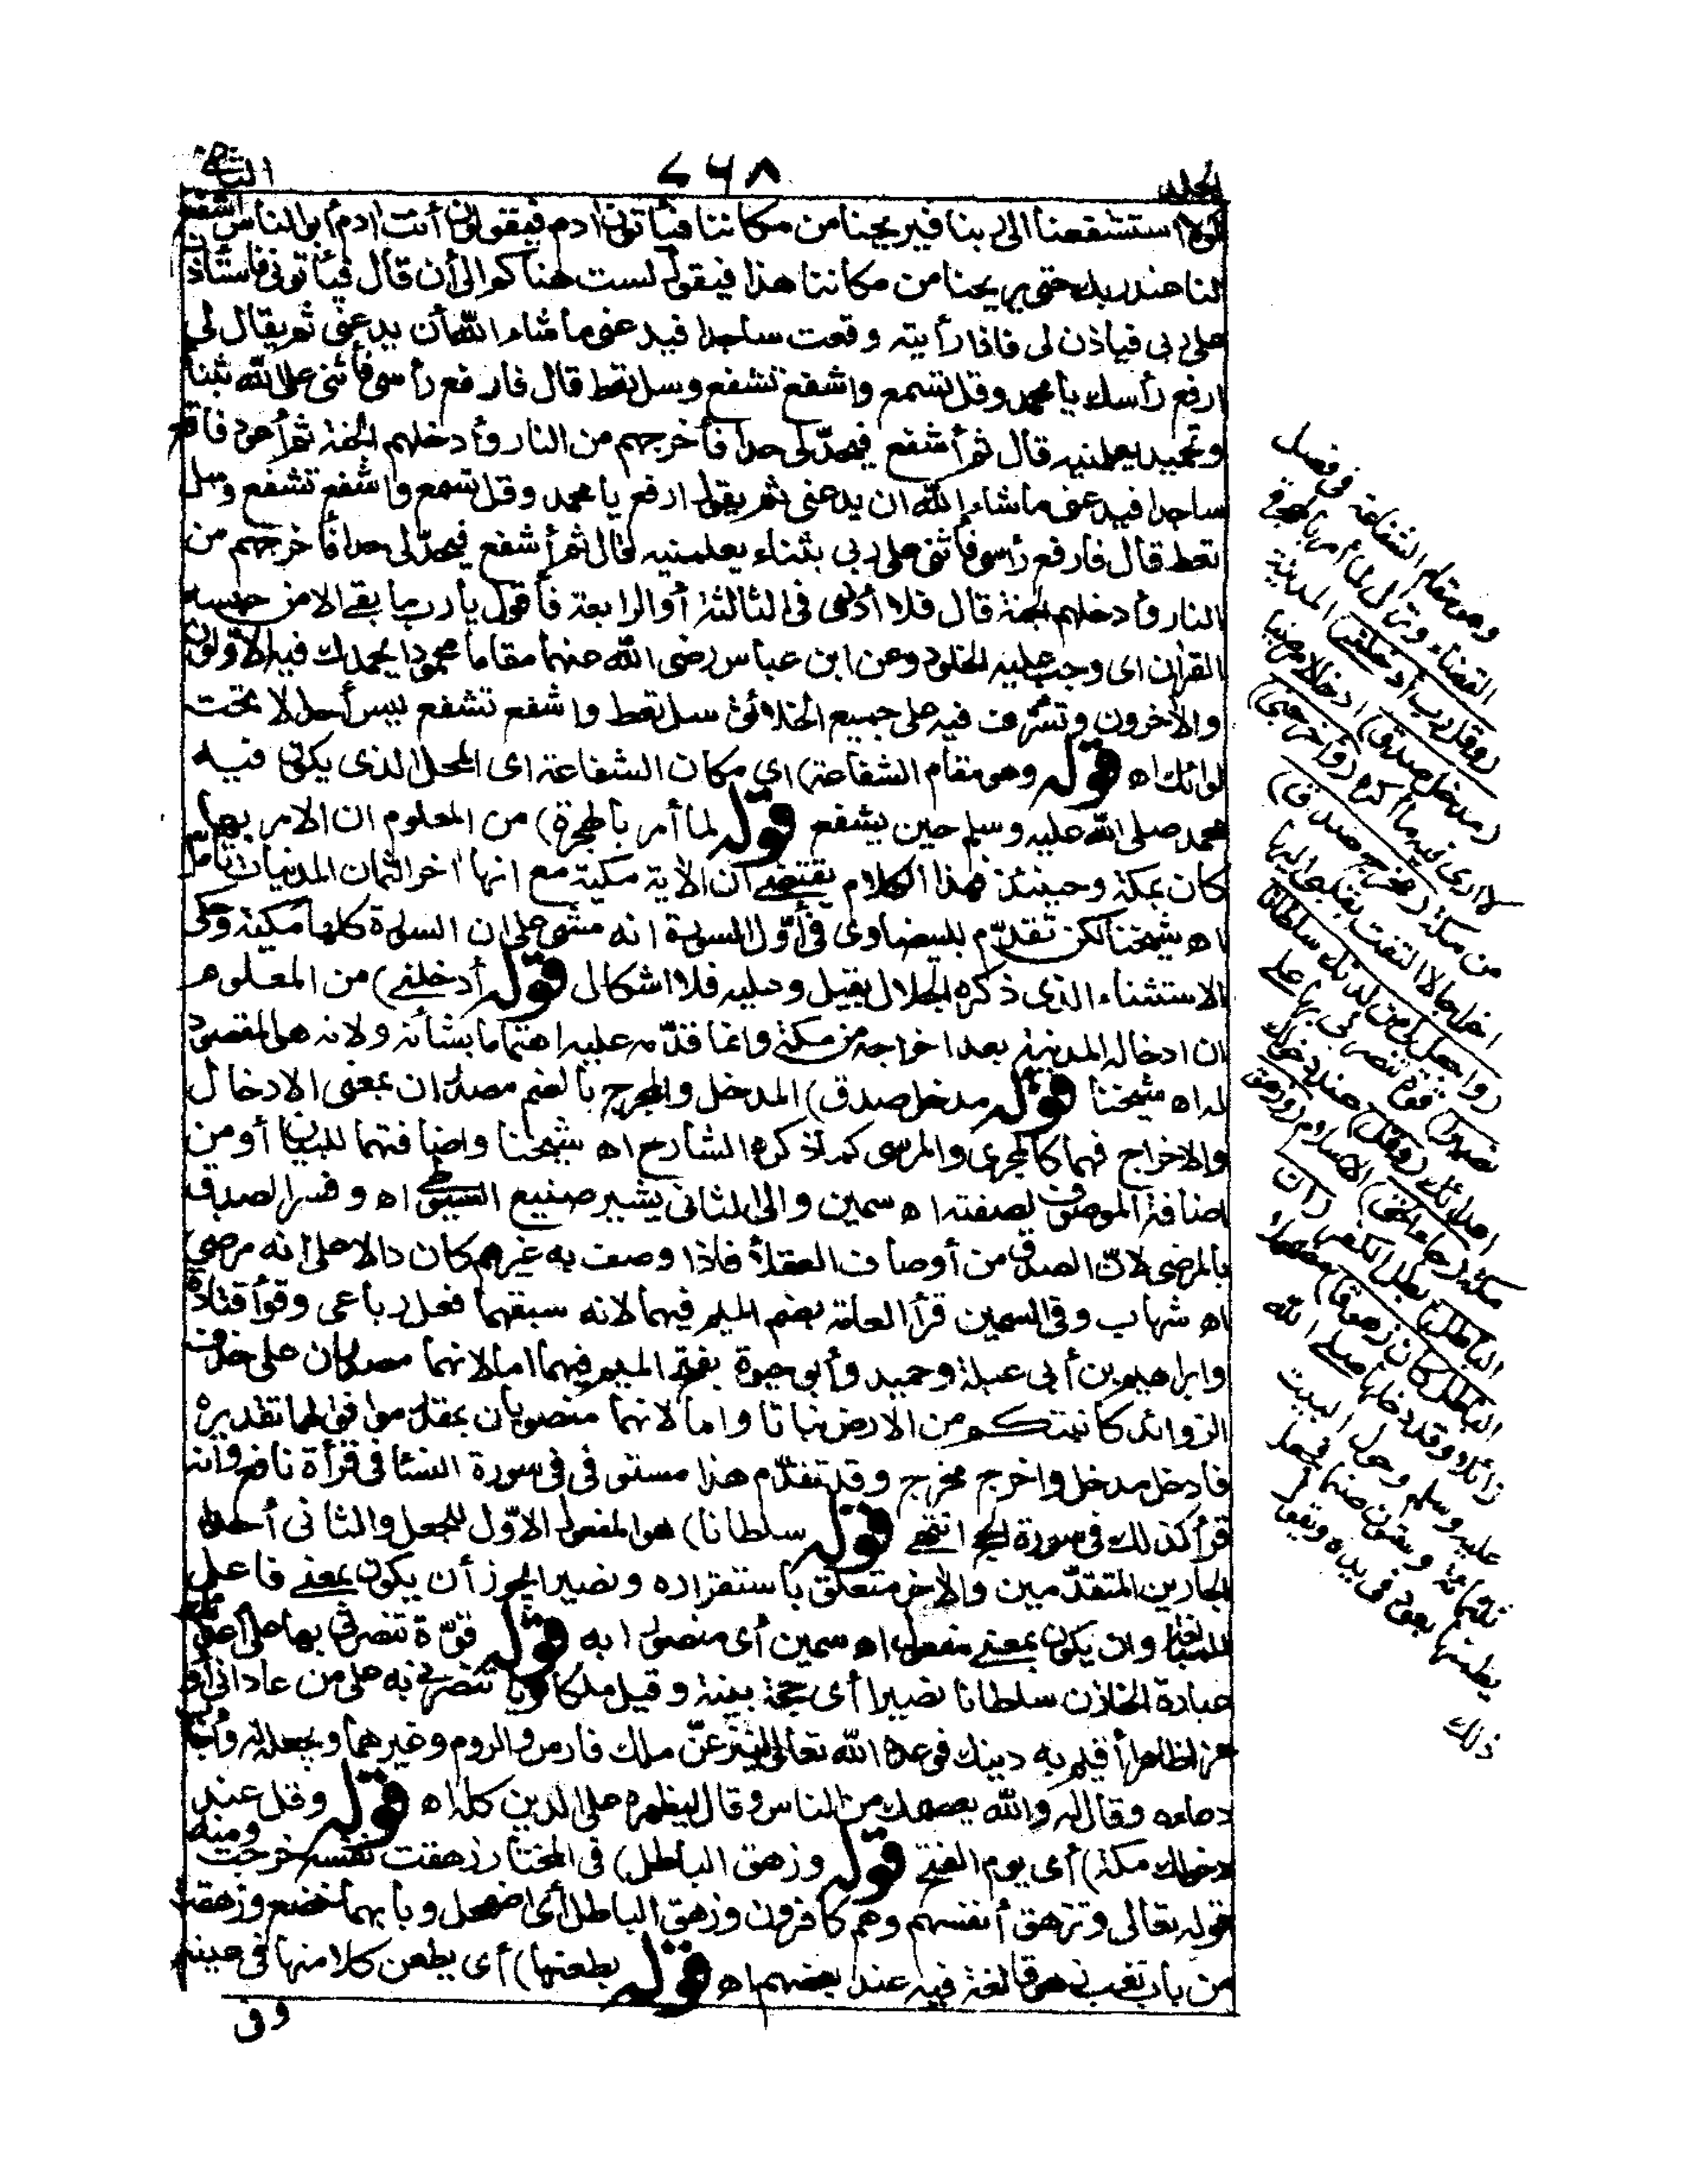 الجلد
٦٤٨
الثانى
لو استشفعنا الى ربنا فيريحنا من مكاننا فيأتون ادم فيقولون أنت ادم أبو الناس اشفع
لنا عند ربك حتى يريحنا من مكاننا هذا فيقول لست هناكم الى أن قال فيأتونى فاستأذن
على ربى فياذن لى فاذا رأيته وقعت ساجدا فيدعنى ماشاء الله أن يدعنى ثم يقال لى
ارفع رأسك يا محمد وقل تسمع واشفع تشفع وسل تعط قال فارفع رأسى فأثنى على الله بثناء
وتحميد يعلمنيه قال ثم أشفع فيحدّ لى حدا فأخرجهم من النار وأدخلهم الجنة ثم أعود فاقع
ساجدا فيدعنى ماشاء الله ان يدعنى ثم يقول ارفع يا محمد وقل تسمع واشفع تشفع وسل
تعط قال فارفع رأسى فأثنى على ربى بثناء يعلمنيه قال ثم أشفع فيحدّ لى حدا فأخرجهم من
النار وأدخلهم الجنة قال فلا أدرى فى الثالثة أو الرابعة فأقول يا رب ما بقى الا من حبسه
القران اى وجب عليه الخلود وعن ابن عباس رضى الله عنهما مقاما محمودا يحمدك فيه الاولون
والآخرون وتشرف فيه على جميع الخلائق سل تعط واشفع تشفع ليس أحد الا تحت
لوائك اه قوله وهو مقام الشفاعة) اى مكان الشفاعة اى المحل الذى يكون فيه
محمد صلى الله عليه وسلم حين يشفع قوله لما أمر بالهجرة) من المعلوم ان الامر بها
كان بمكة وحينئذ فهذا الكلام يقتضى ان الآية مكية مع انها اخر الثمان المدنيات تأمل
اه شيخنا لكن تقدّم للبيضاوى فى أوّل السورة انه مشى على ان السورة كلها مكية وحكى
الاستثناء الذى ذكره الجلال بقيل وعليه فلا اشكال قوله أدخلنى) من المعلوم
ان ادخاله المدينة بعد اخراجه من مكة وانما قدّمه عليه اهتماما بشأنه ولانه هو المقصود
له اه شيخنا قوله مدخل صدق) المدخل والمخرج بالضم مصدران بمعنى الادخال
والاخراج فهما كالمجرى والمرسى كما ذكره الشارح اه شيخنا واضافتهما للبيان أو من
اضافة الموصوف لصفته اه سمين والى الثانى يشير صنيع السيوطى اه وفسر الصدق
بالمرضى لانّ الصدق من أوصاف العقلاء فاذا وصف به غيرهم كان دالا على انه مرضى
اه شهاب وفى السمين قرأ العامة بضم الميم فيهما لانه سبقهما فعل رباعى وقرأ قتادة
وابراهيم بن أبى عبلة وحميد وأبو حيوة بفتح الميم فيهما اما لانهما مصدران على حذف
الزوائد كانبتكم من الارض نباتا واما لانهما منصوبان بمقدر موافق لهما تقديره
فادخل مدخل واخرج مخرج وقد تقدّم هذا مستوفى فى سورة النساء فى قرأة نافع وانه
قرأ كذلك فى سورة الحج انتهى قوله سلطانا) هو المفعول الاوّل للجعل والثانى أحد
الجارين المتقدّمين والآخر متعلق باستقراره ونصيرا يجوز أن يكون بمعنى فاعل
للمبالغة وان يكون بمعنى مفعول اه سمين أى منصورا به قوله قوّة تنصرنى بها على أعدائك
عبارة الخازن سلطانا نصيرا أى حجة بينة وقيل ملكا قويا تنصرنى به على من عادانى أو
عزا ظاهرا أقيم به دينك فوعده الله تعالى لينزعنّ ملك فارس والروم وغيرهما ويجعله له وأجاب
دعاءه وقال له والله يعصمك من الناس وقال ليظهره على الدين كله اه قوله وقل عند
دخولك مكة) أى يوم الفتح قوله وزهق الباطل) فى المختار زهقت نفسه خرجت ومنه
قوله تعالى وتزهق أنفسهم وهم كافرون وزهق الباطل أى اضمحل وبابهما خضع وزهقت
من باب تعب زهوقا لغة فيه عند بعضهم اه قوله يطعنها) أى يطعن كلا منها فى عينه
وفى
وهو مقام الشفاعة فى فصل
القضاء ونزل لما أمر بالهجرة
(وقل رب أدخلنى) المدينة
(مدخل صدق) ادخالا مرضيا
لا ارى فيه ما أكره (وأخرجنى)
من مكة (مخرج صدق)
اخراجا لا التفت بقلبى اليها
(واجعل لى من لدنك سلطانا
نصيرا) قوة تنصرنى بها على
اعدائك (وقل) عند دخولك
مكة (جاء الحق) الاسلام (وزهق
الباطل) بطل الكفر (ان
الباطل كان زهوقا) مضمحلا
زائلا وقد دخلها صلى الله
عليه وسلم وحول البيت
ثلثمائة وستون صنما فجعل
يطعنها بعود فى يده ويقول
ذلك